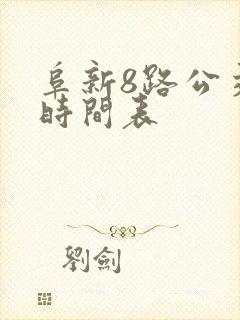 阜新8路公
時間表
劉劍